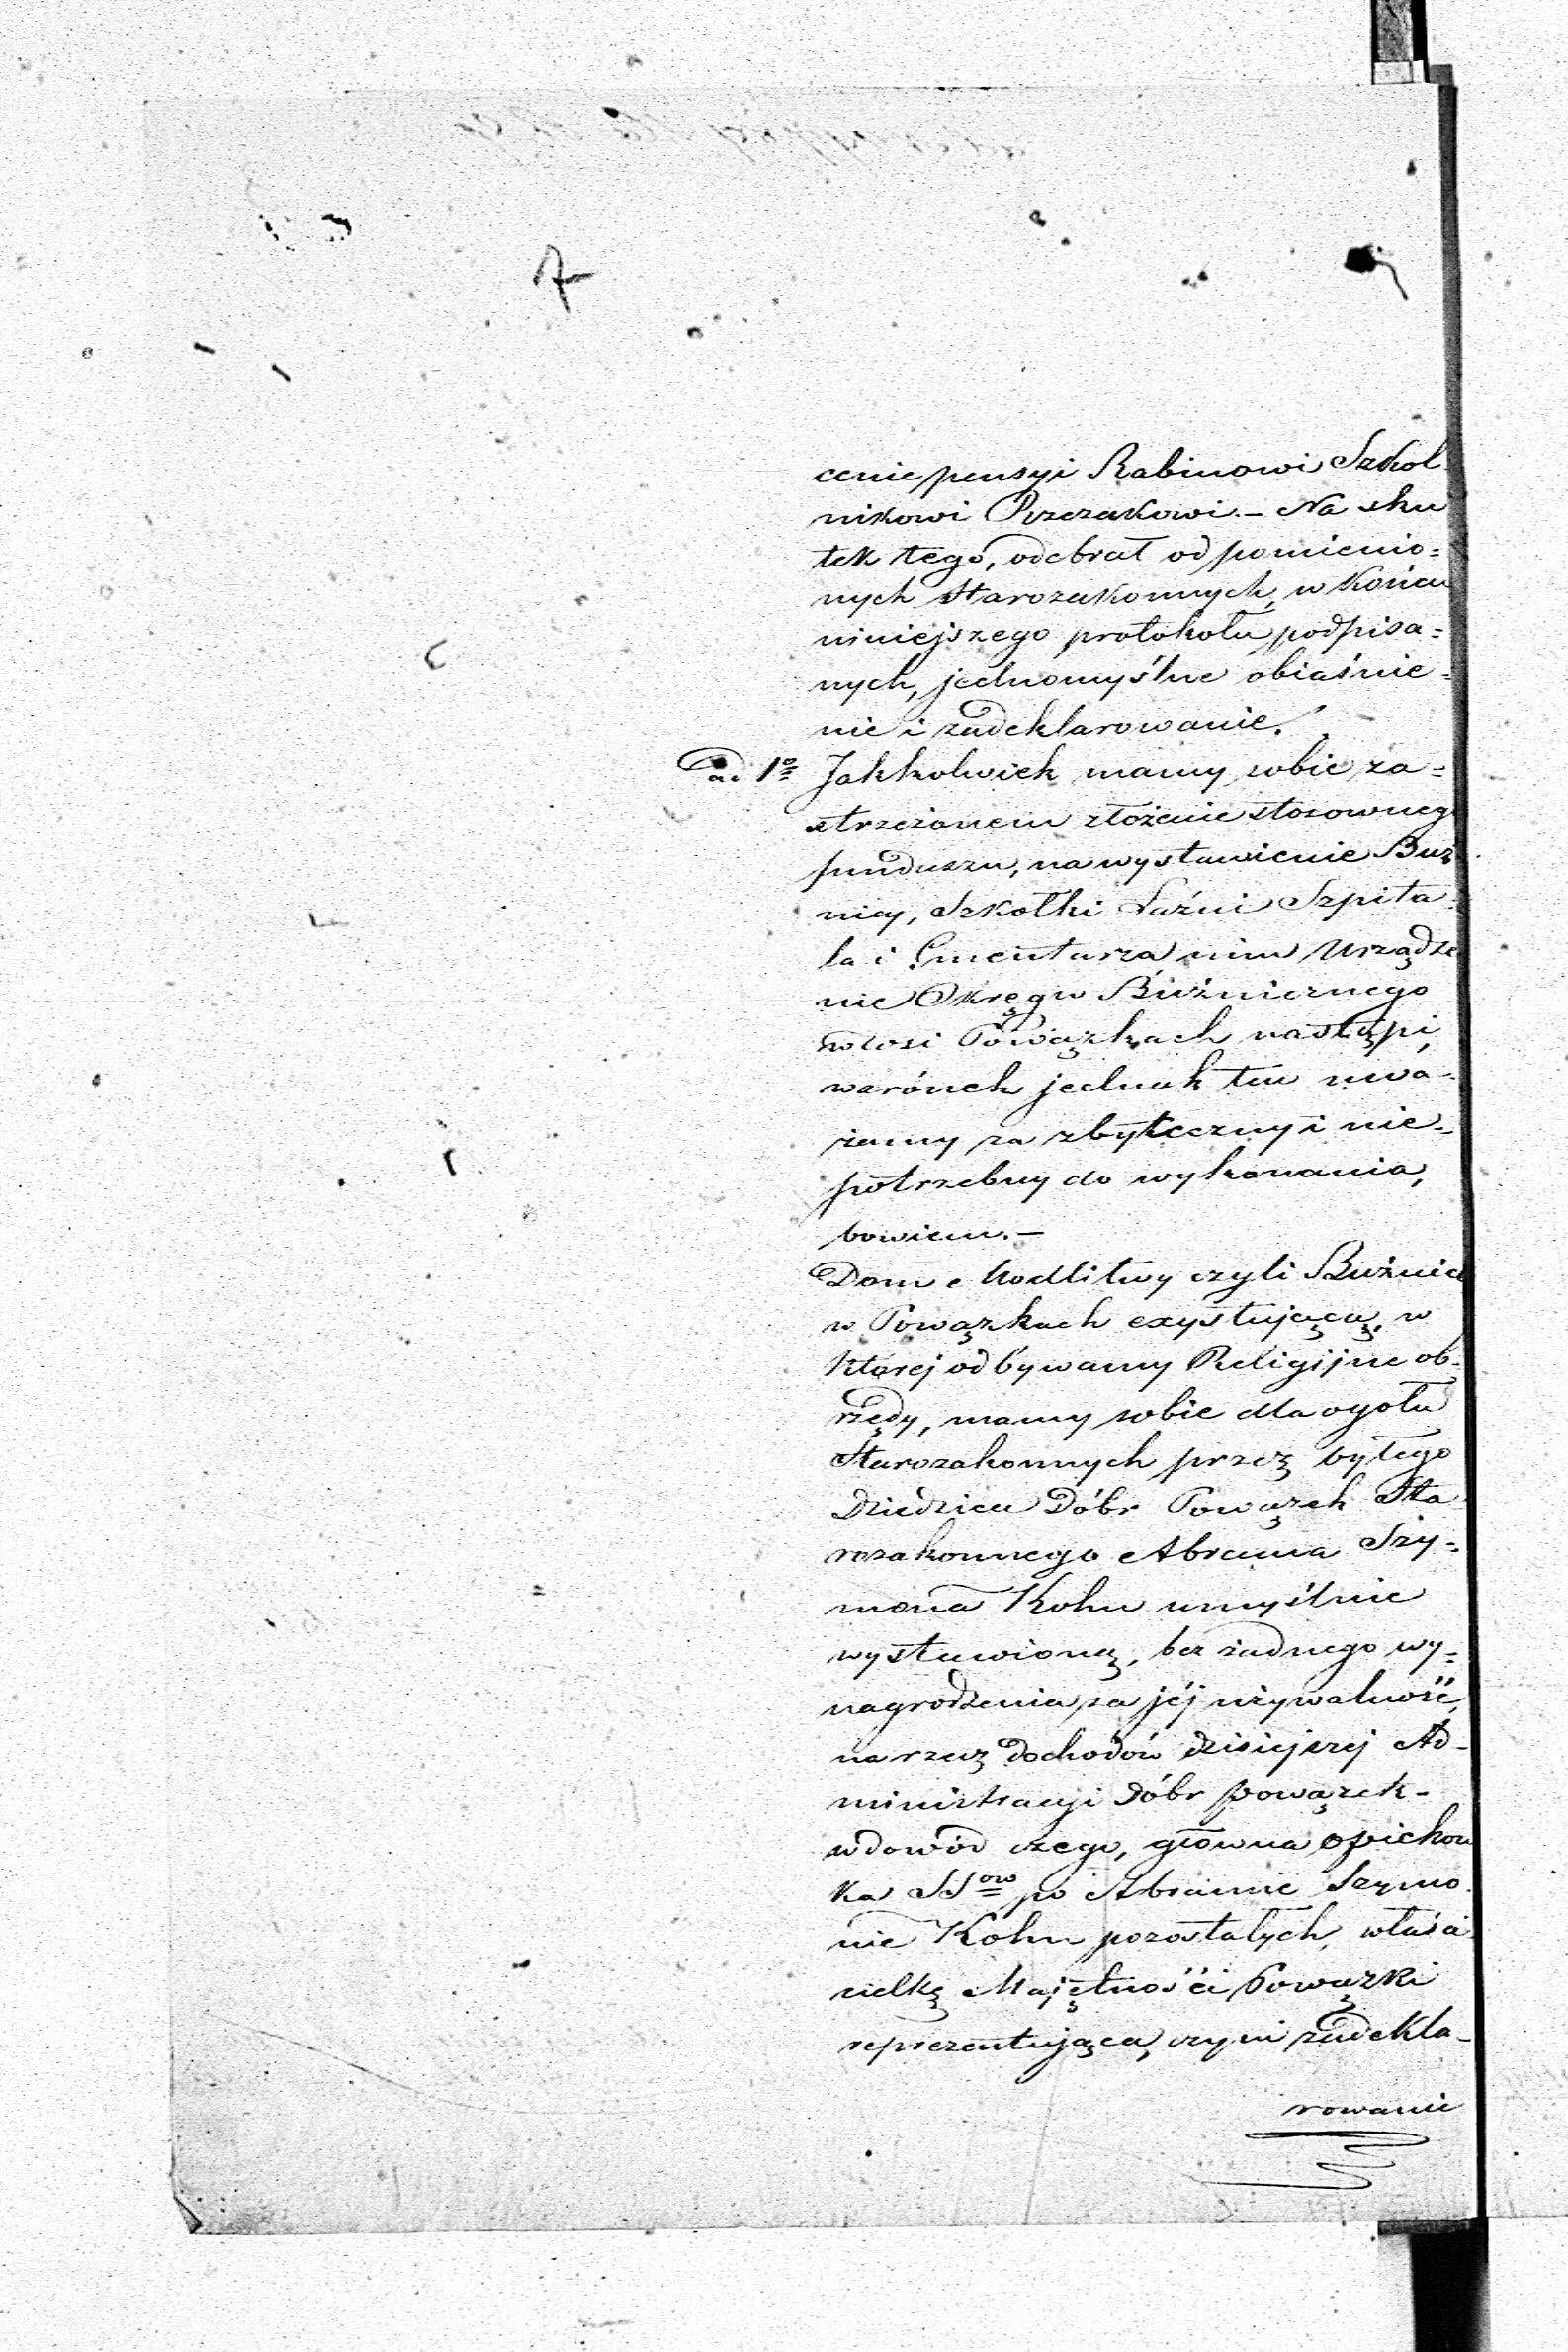 7
cenie pensyi Rabinowi Szkol
nikowi Rzezakowi.— Na sku
tek tego, odebrał od pomienio=
nych Starozakonnych, w końcu
niniejszego protokołu podpisa=
nych, jednomyślne obiaśnie=
nie i zadeklarowanie.
ad 1o Jakkolwiek mamy sobie za=
strzeżonem złożenie stosownego
funduszu, na wystawienie Buż
nicy, Szkołki Łaźni Szpita=
la i Cmentarza nim Urządze
nie Okręgu Bużnicznego
w wsi Powązkach nastąpi,
warónek jednak ten uwa-
żamy za zbyteczny i nie-
potrzebny do wykonania,
bowiem.—
Dom Modlitwy czyli Bużnica
w Powązkach exystującą, w
której odbywamy Religijne ob-
rzędy, mamy sobie dla ogołu
Starozakonnych przez byłego
Dziedzica Dóbr Powązek Sta
rozakonnego Abrama Szy-
mona Kohn umyślnie
wystawioną, bez żadnego wy=
nagrodzenia za jéj używalność,
na rzecz dochodów dzisiejszej Ad-
ministracyi Dóbr Powązek-
w dowód czego, główna opiekun
ka SSow po Abramie Szymo
nie Kohn pozostałych, właści
cielkę Majętności Powązki
reprezentująca, czyni zadekla-
rowanie